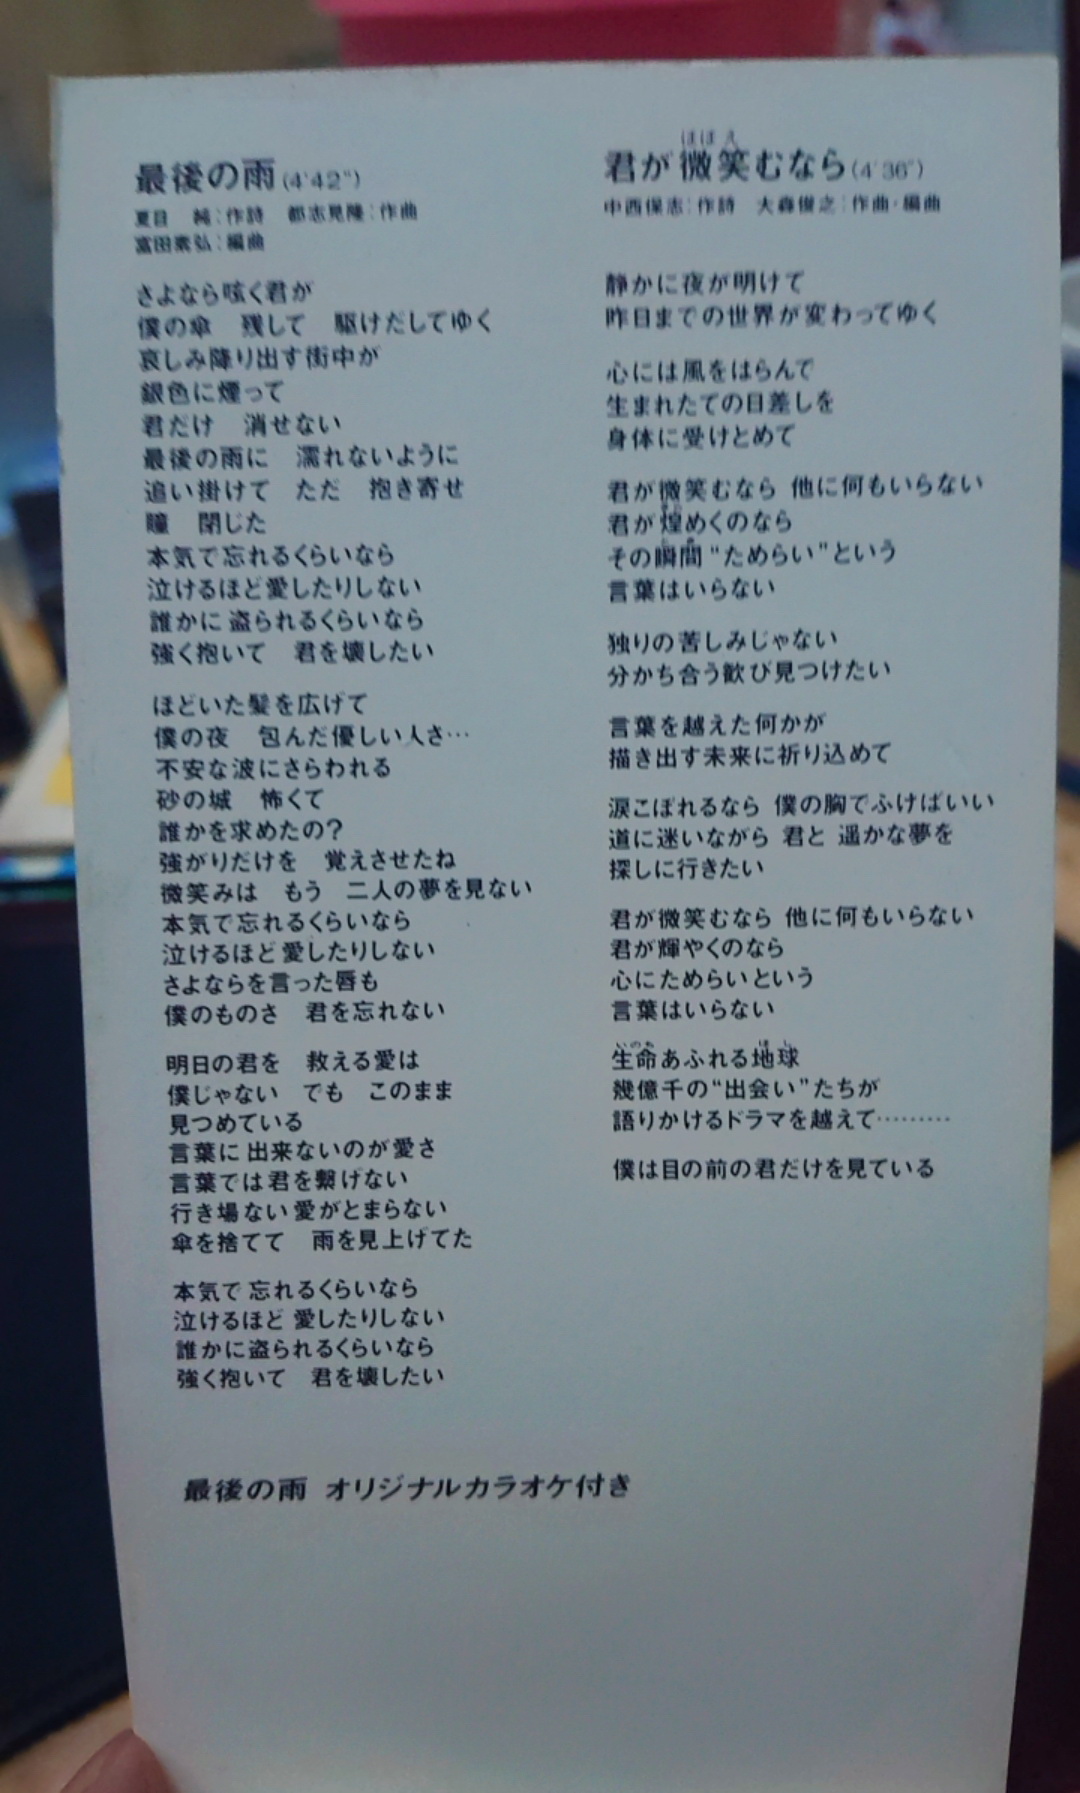 最後の雨(4'42")
夏目 純:作詩 都志見隆:作曲
富田素弘:編曲
さよなら呟く君が
僕の傘 残して 駆けだしてゆく
哀しみ降り出す街中が
銀色に煙って
君だけ 消せない
最後の雨に 濡れないように
追い掛けて ただ 抱き寄せ
瞳 閉じた
本気で忘れるくらいなら
泣けるほど愛したりしない
誰かに盗られるくらいなら
強く抱いて 君を壊したい
ほどいた髪を広げて
僕の夜 包んだ優しい人さ…
不安な波にさらわれる
砂の城 怖くて
誰かを求めたの?
強がりだけを 覚えさせたね
微笑みは もう 二人の夢を見ない
本気で忘れるくらいなら
泣けるほど愛したりしない
さよならを言った唇も
僕のものさ 君を忘れない
明日の君を 救える愛は
僕じゃない でも このまま
見つめている
言葉に出来ないのが愛さ
言葉では君を繋げない
行き場ない愛がとまらない
傘を捨てて 雨を見上げてた
本気で忘れるくらいなら
泣けるほど愛したりしない
誰かに盗られるくらいなら
強く抱いて 君を壊したい
最後の雨 オリジナルカラオケ付き
ほほえ
君が微笑むなら(4'36")
中西保志:作詩 大森俊之:作曲・編曲
静かに夜が明けて
昨日までの世界が変わってゆく
心には風をはらんで
生まれたての目差しを
身体に受けとめて
君が微笑むなら 他に何もいらない
君が煌めくのなら
その瞬間“ためらい”という
言葉はいらない
独りの苦しみじゃない
分かち合う歓び見つけたい
言葉を越えた何かが
描き出す未来に祈り込めて
涙こぼれるなら 僕の胸でふけばいい
道に迷いながら 君と 遥かな夢を
探しに行きたい
君が微笑むなら 他に何もいらない
君が輝やくのなら
心にためらいという
言葉はいらない
いのち ほし
生命あふれる地球
幾億千の“出会い”たちが
語りかけるドラマを越えて………
僕は目の前の君だけを見ている